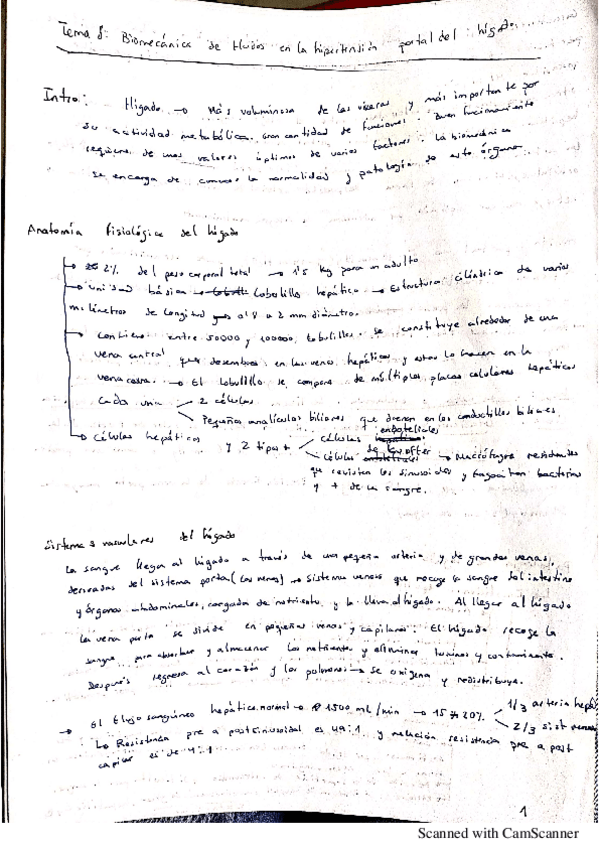 Tema 8: Biomecánica de fluidos en la hipertensión portal del hígado
Intro: Hígado → Más voluminosa de las vísceras y más importante por
su actividad metabólica. Gran cantidad de funciones. Buen funcionamiento
requiere de unos valores óptimos de varios factores. La biomecánica
se encarga de conocer la normalidad y patología de este órgano
Anatomía fisiológica del hígado
→ 2% del peso corporal total → 1'5 kg para un adulto
→ Unidad básica → Lobulillo hepático → Estructura cilíndrica de varios
milímetros de longitud y 0'8 a 2 mm diámetros.
→ Contiene entre 50000 y 100000 lobulillos. Se constituye alrededor de una
vena central que desemboca en las venas hepáticas y estas lo hacen en la
vena cava. → El lobulillo se compone de múltiples placas celulares hepáticas
Cada una 2 células
Pequeños canalículos biliares que drenan en los conductillos biliares
→ Células hepáticas y 2 tipos + células endoteliales
células de Kupffer → Macrófagos residentes
que revisten los sinusoides y fagocitan bacterias
y + de la sangre.
Sistemas vasculares del hígado
La sangre llega al hígado a través de una pequeña arteria y de grandes venas,
derivadas del sistema porta (las venas) → sistema venoso que recoge la sangre del intestino
y órganos abdominales, cargada de nutrientes, y la lleva al hígado. Al llegar al hígado
la vena porta se divide en pequeñas venas y capilares. El hígado recoge la
sangre para absorber y almacenar los nutrientes y eliminar toxinas y contaminantes.
Después regresa al corazón y los pulmones → se oxigena y redistribuye.
→ El flujo sanguíneo hepático normal → 1500 ml/min → 15 20% 1/3 arteria hepá
2/3 sist venoso
La Resistencia pre a postsinusoidal es 49:1 y relación resistencia pre a post
capilar es de 4:1
1
Scanned with CamScanner